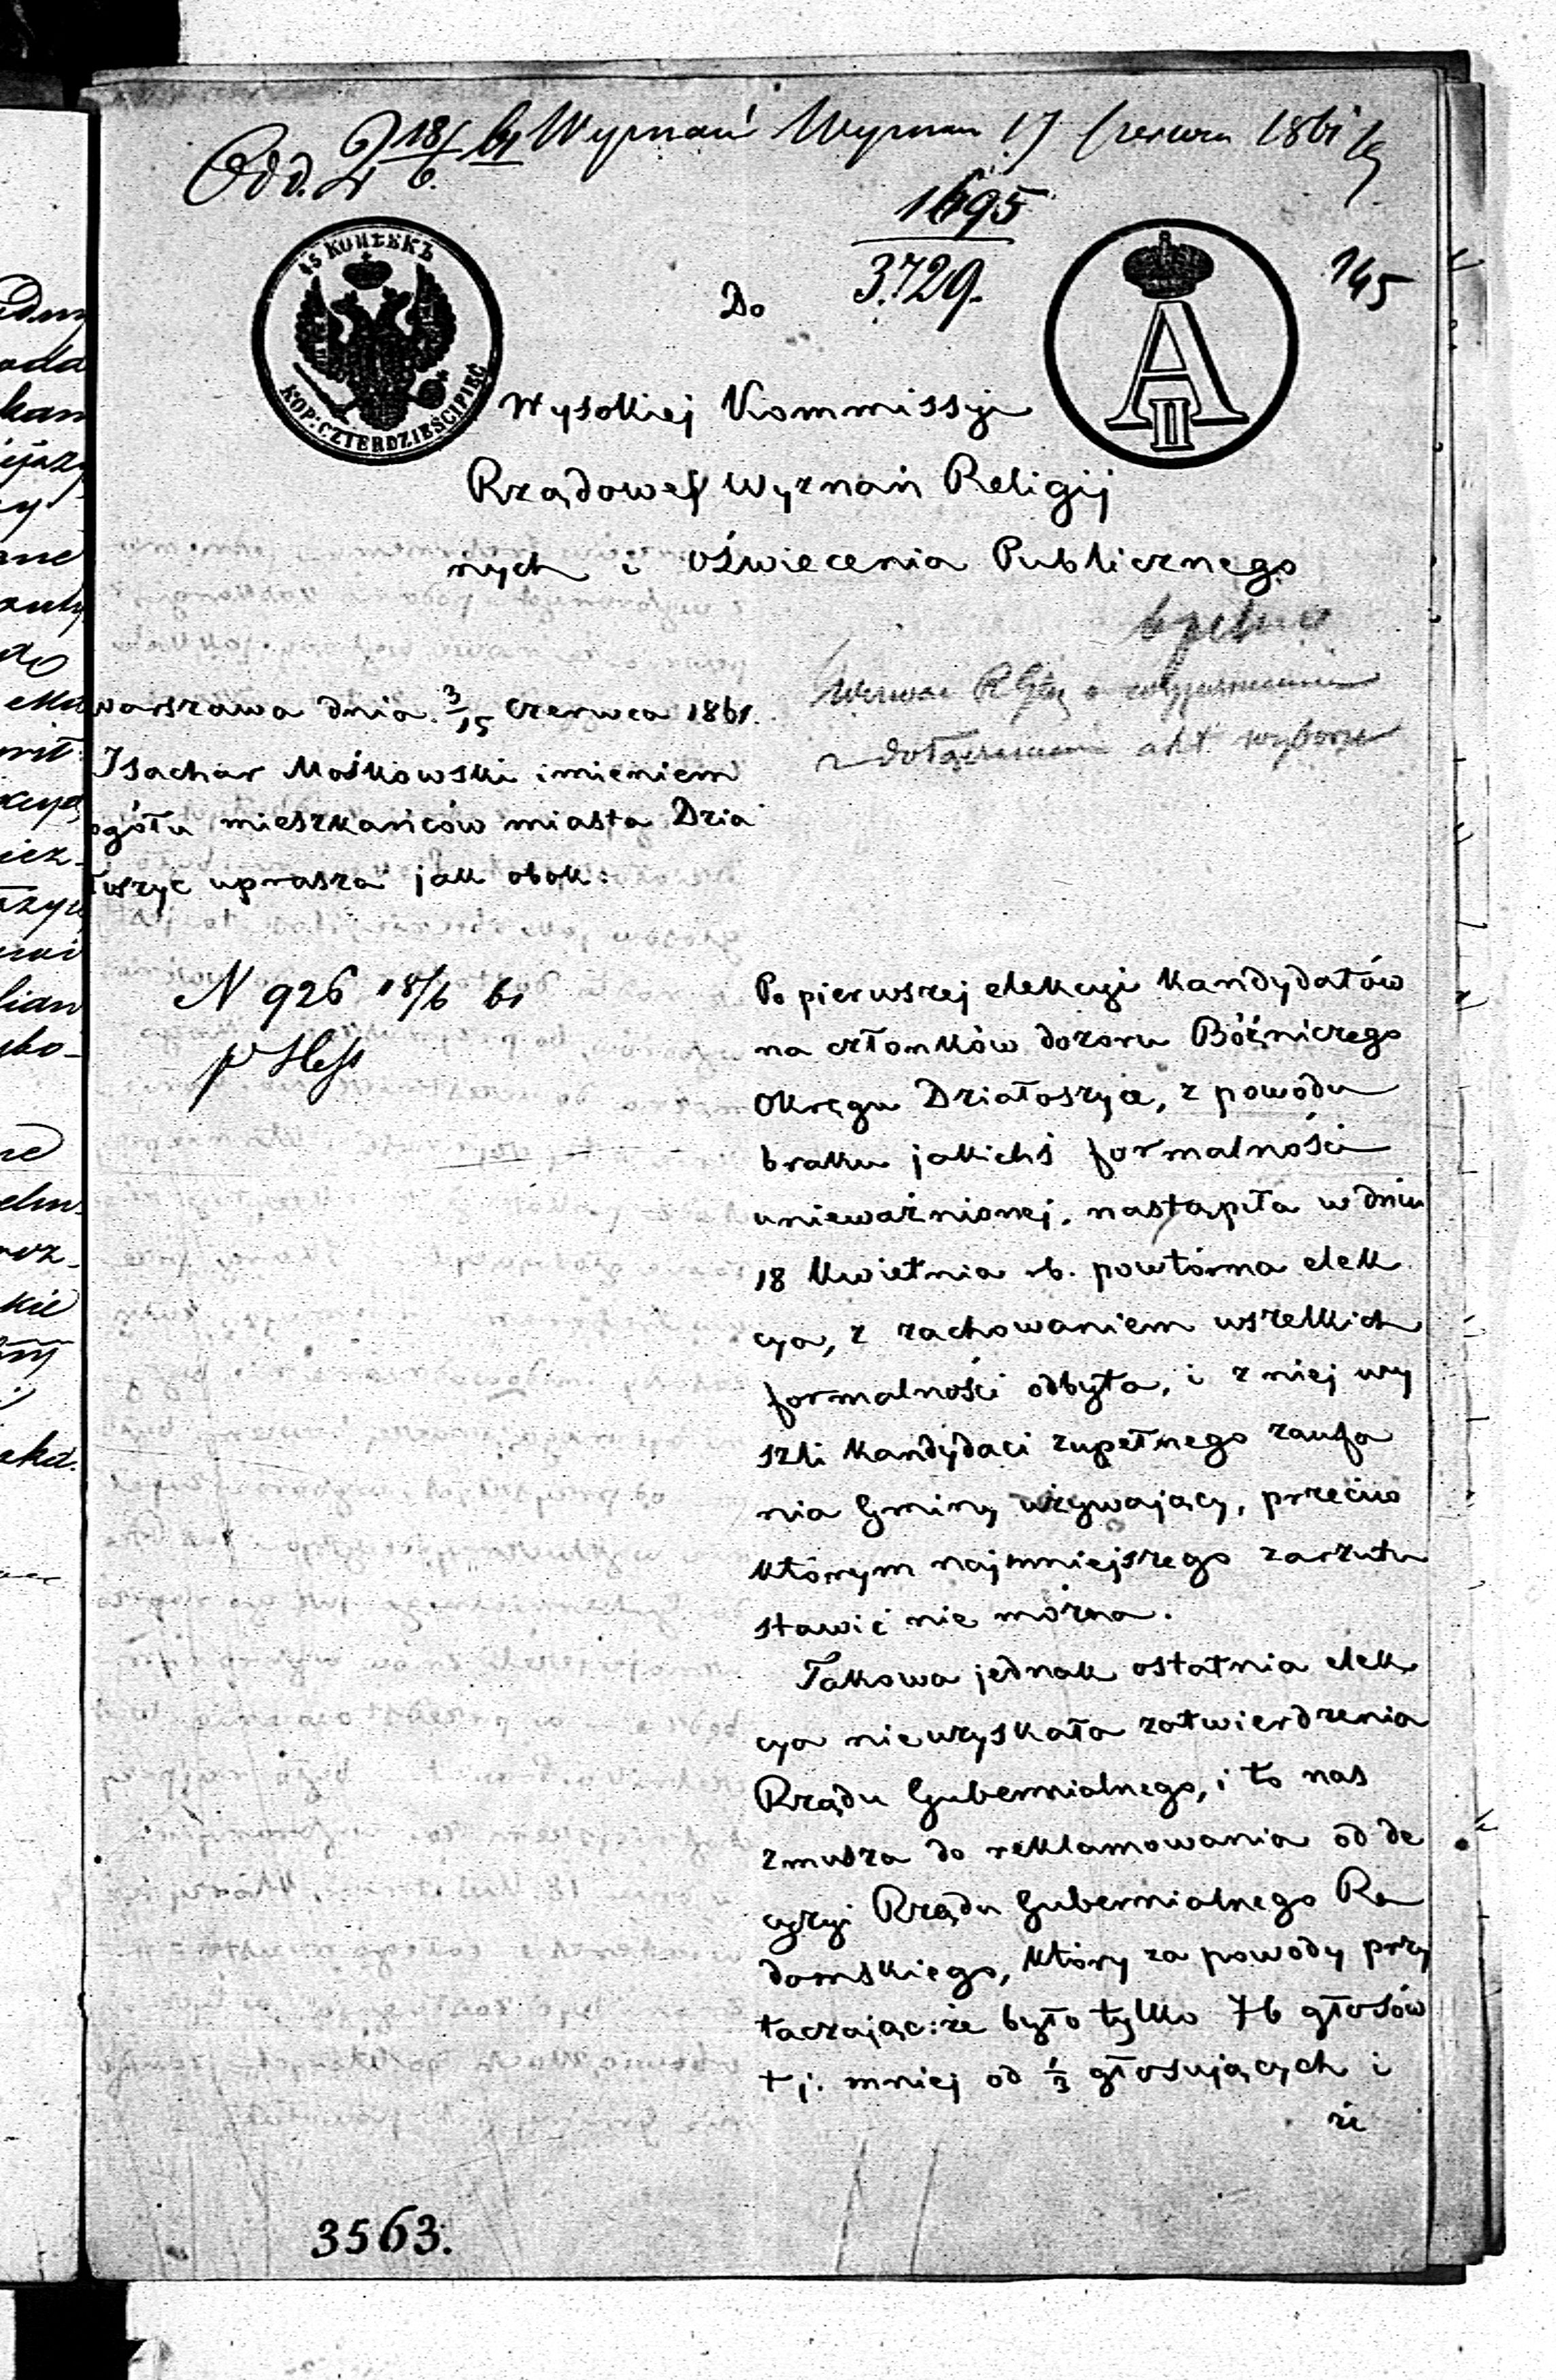 Odd. 2 18/6 61 Wyznań Wyznan 17 Czerwca 1861
1695
3729.
145
45 КОПѢЕКЪ
KOP: CZTERDZIEŚCI PIĘĆ
A II
Do
Wysokiej Kommissyi
Rządowej Wyznań Religij
nych i Oświecenia Publicznego
Wezwać R Gby o
z dołączeniem akt wyboru
Warszawa dnia 3/15 Czerwca 1861.
Isachar Mośkowski imieniem
ogółu mieszkańców miasta Dzia
łoszyc uprasza jak obok:
N 926 18/6 61
Po pierwszej elekcyi Kandydatów
na członków dozoru Bóżniczego
Okręgu Działoszyce, z powodu
braku jakichś formalności
unieważnionej, nastąpiła w dniu
18 Kwietnia rb. powtórna elek
cya, z zachowaniem wszelkich
formalności odbyta, i z niej wy
szli Kandydaci zupełnego zaufa
nia Gminy używający, przeciw
którym najmniejszego zarzutu
stawić nie można.
Takowa jednak ostatnia elek
cya nie uzyskała zatwierdzenia
Rządu Gubernialnego, i to nas
zmusza do reklamowania od de
cyzyi Rządu Gubernialnego Ra
domskiego, który za powody przy
taczając: że było tylko 76 głosów
t j. mniej od 1/3 głosujących i
że
3563.